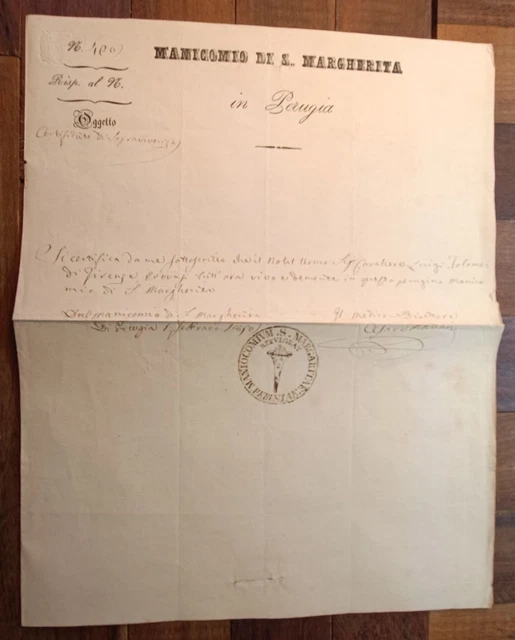 N. 400
MANICOMIO DI S. MARGHERITA
Risp. al N.
in Perugia
Oggetto
Certificato di Sopravvivenza
Si certifica da me sottoscritto che il Nobil Uomo Sig Cavaliere Luigi Tolomei
di Firenze trovasi tutt'ora vivo e demente in questo perugino manico
mio di S. Margherita
Dal manicomio di S. Margherita
Il medico Direttore
Di Perugia
MANICOMIUM S. MARGARITAE PERUSINAE
REVIVISCAT